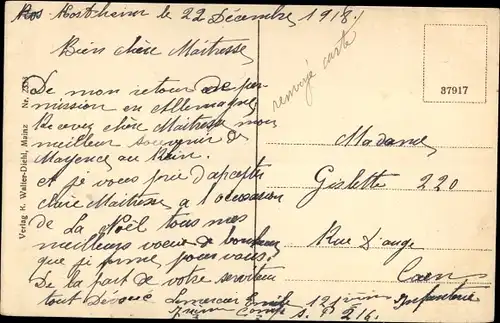 Kostheim le 22 Décembre 1918
Bien chère Maitresse
De mon retour de per
mission en Allemagne
Recevez chère Maitresse mon
meilleur souvenir de
Mayence au Rhin.
et je vous prie d'accepter
chère Maitresse a l'occasion
de la Noël tous mes
meilleurs voeux de bonheur
que je forme pour vous.
De la part de votre serviteur
tout Dévoué Lemercier Emile 121 Infanterie
7ème Compie S. P. 216.
renvoyé carte
37917
Madame
Gislette 220
Rue d'auge
Caen
Verlag K. Walter-Diehl, Mainz Nr.